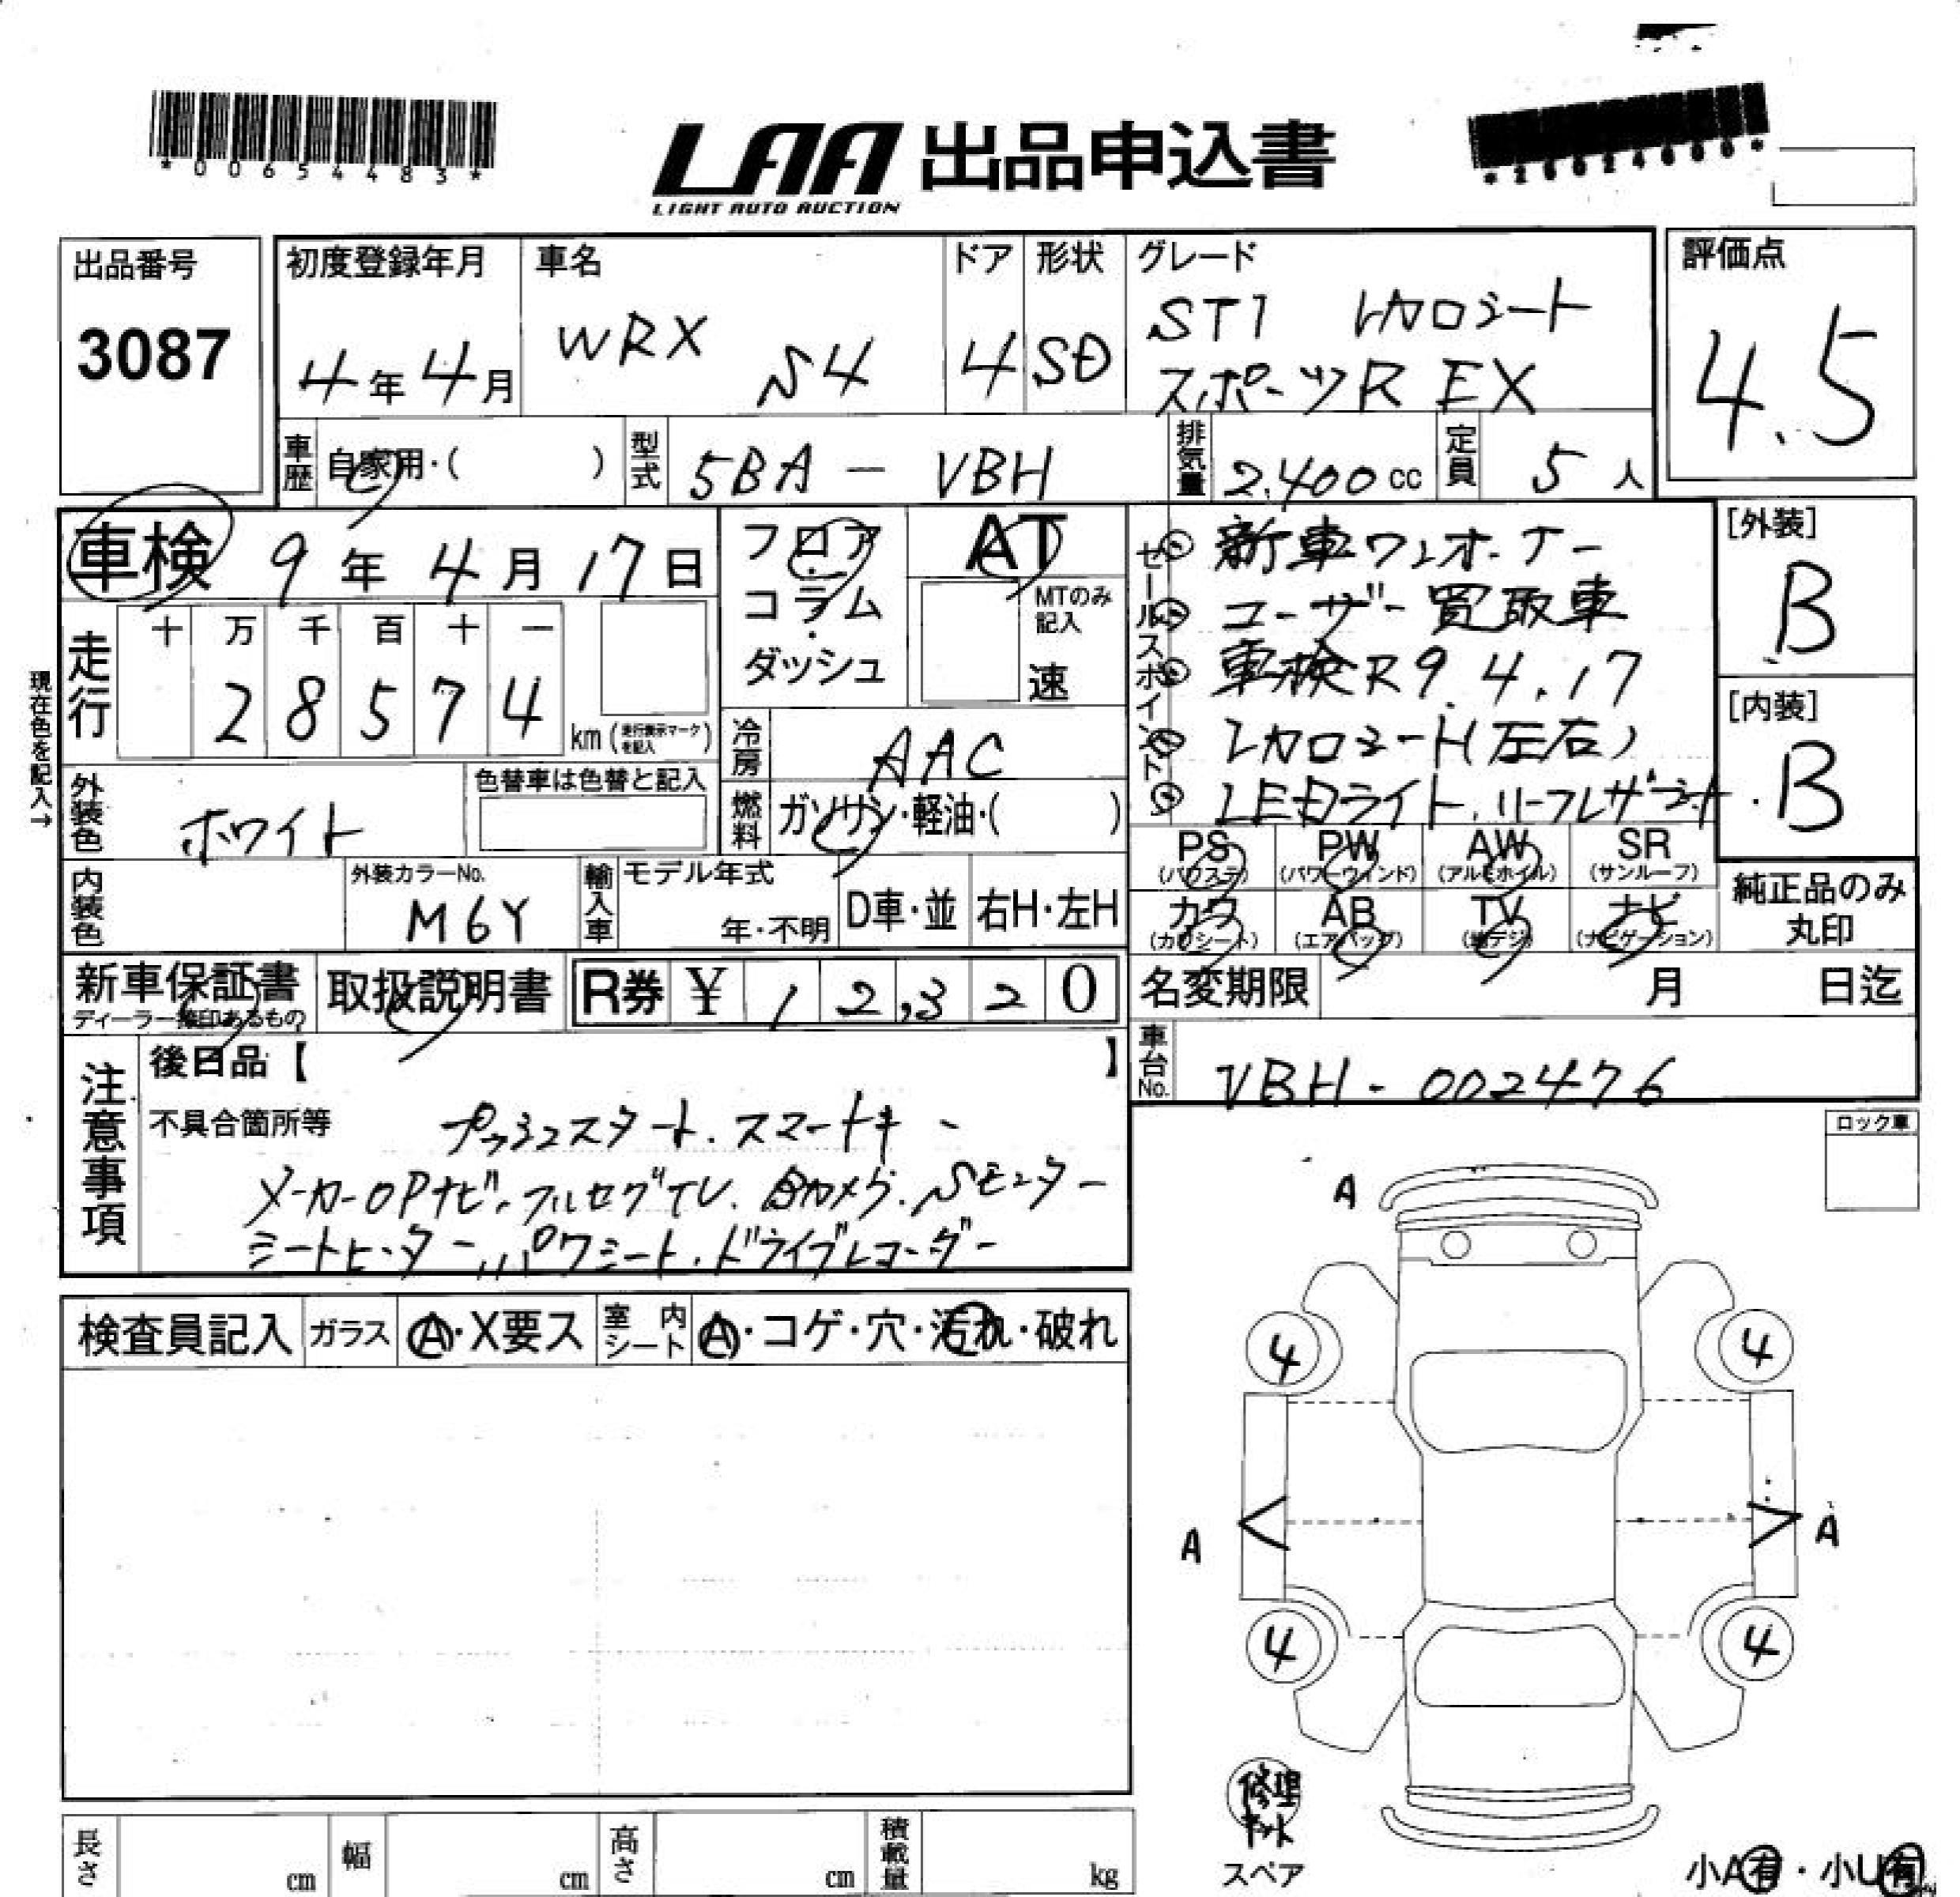 *00654483*
LAA 出品申込書
LIGHT AUTO AUCTION
出品番号
3087
初度登録年月
4年4月
車名
WRX S4
ドア
4
形状
SD
グレード
STI レカロシート
スポーツR EX
評価点
4.5
車歴
自家用・( )
型式
5BA - VBH
排気量
2,400cc
定員
5人
車検 9年4月17日
フロア・コラム・ダッシュ
AT
MTのみ記入
速
セールスポイント
① 新車ワンオーナー
② ユーザー買取車
③ 車検R9.4.17
④ レカロシート(左右)
⑤ LEDライト.リーフレザーシート.
[外装]
B
[内装]
B
現在色を記入→
走行
十 万 千 百 十 一
2 8 5 7 4
km (走行表示マークを記入)
冷房
AAC
燃料
ガソリン・軽油・( )
外装色
ホワイト
色替車は色替と記入
内装色
外装カラーNo.
M6Y
輸入車
モデル年式
年・不明
D車・並
右H・左H
PS (パワステ)
PW (パワーウィンド)
AW (アルミホイル)
SR (サンルーフ)
カワ (カワシート)
AB (エアバッグ)
TV (地デジ)
ナビ (ナビゲーション)
純正品のみ丸印
新車保証書
ディーラー捺印あるもの
取扱説明書
R券 ¥ 12,320
名変期限 月 日迄
車台No.
VBH - 002476
注意事項
後日品【 】
不具合箇所等
プッシュスタート.スマートキー
メーカーOPナビ.フルセグTV.Bカメラ.Sモニター
シートヒーター.パワシート.ドライブレコーダー
ロック車
検査員記入
ガラス
A・X要ス
室内シート
A・コゲ・穴・汚れ・破れ
A
4 4
A A
4 4
修理キット
スペア
小A有・小U有
長さ cm
幅 cm
高さ cm
積載量 kg